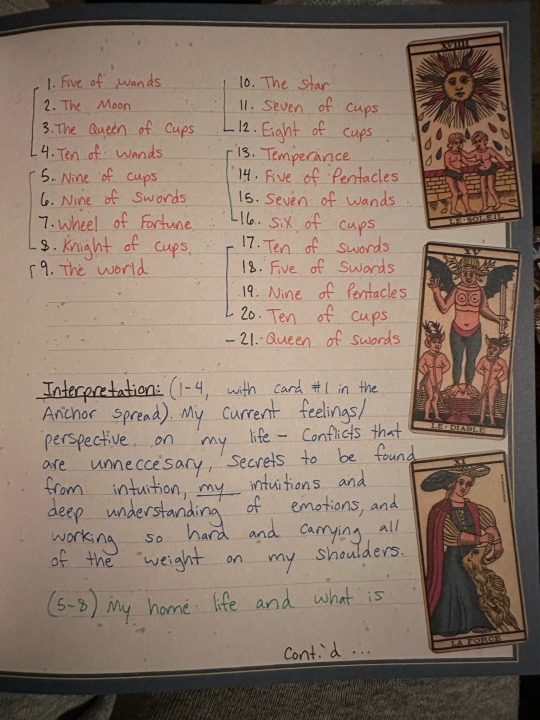 1. Five of wands
2. The Moon
3. The Queen of Cups
4. Ten of wands
5. Nine of cups
6. Nine of Swords
7. Wheel of Fortune
8. Knight of cups
9. The world
10. The Star
11. Seven of cups
12. Eight of cups
13. Temperance
14. Five of Pentacles
15. Seven of wands
16. Six of cups
17. Ten of swords
18. Five of Swords
19. Nine of Pentacles
20. Ten of cups
- 21. Queen of swords
Interpretation: (1-4, with card #1 in the
Anchor spread). My current feelings/
perspective on my life - Conflicts that
are unneccesary, Secrets to be found
from intuition, my intuitions and
deep understanding of emotions, and
working so hard and carrying all
of the weight on my shoulders.
(5-8) My home life and what is
Cont.'d ...
XVIIII
LE·SOLEIL
XV
LE·DIABLE
XI
LA FORCE